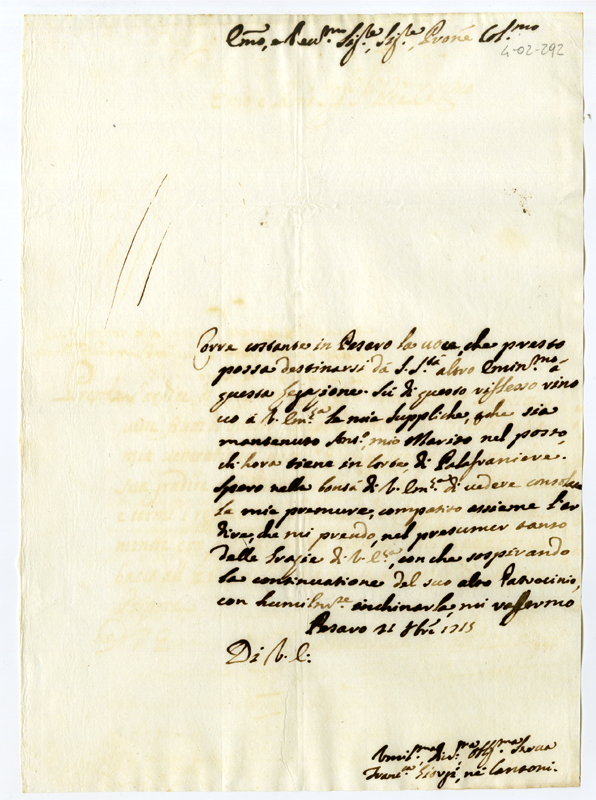 Em͞o, e Reu.mo Sig.re, Sig.re, Pro͞ne Col.mo
4-02-292
Corre costante in Pesaro la uoce, che presto
possa destinarsi dà S. S.tà altro Emin.mo à
questa Legazione. Sù di questo riflesso rino
uo à V. Em.za le mie suppliche, p͞che sia
mantenuto Ant.o mio Marito nel posto,
ch'hora tiene in Corte di Palafraniere.
Spero nella bontà di V. Em.za di uedere consolate
le mie premure, compatito assieme l'ar
dire, che mi prendo, nel presumer tanto
delle Grazie di V. E.za, con che sospirando
la continuatione del suo alto Patrocinio,
con humilm.te inchinarla, mi raffermo
Pesaro 21 8bre 1715
Di V. E:
Vmil.ma Diu.ma Oblig.ma Serua
Fran.ca Giorgi, nè Cantoni.